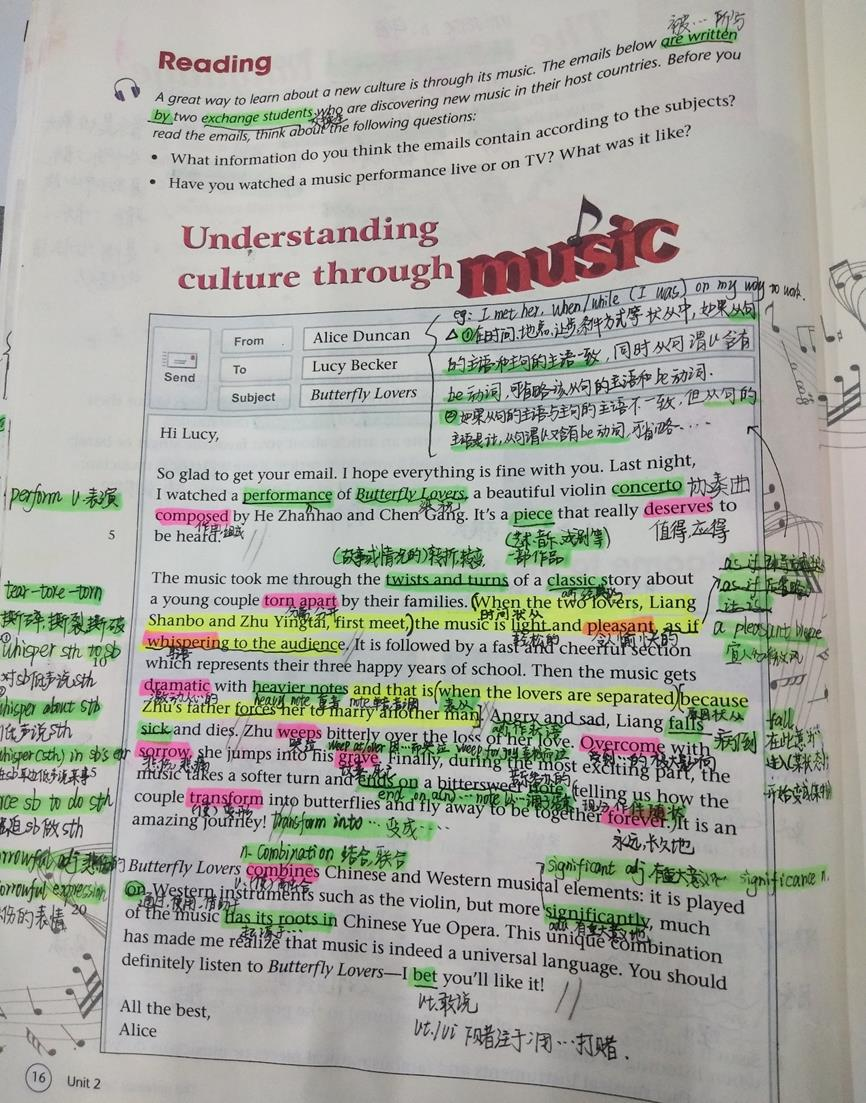 被…所写
Reading
A great way to learn about a new culture is through its music. The emails below are written
by two exchange students who are discovering new music in their host countries. Before you
read the emails, think about the following questions:
• What information do you think the emails contain according to the subjects?
• Have you watched a music performance live or on TV? What was it like?
Understanding
culture through music
eg: I met her, when/while (I was) on my way to work.
△ ①在时间、地点、让步、条件方式等状从中,如果从句
的主语和主句的主语一致,同时从句谓语含有
be动词,可省略该从句的主语和be动词.
②如果从句的主语与主句的主语不一致,但从句的
主语是it,从句谓语又含有be动词,可省略……
Send
From Alice Duncan
To Lucy Becker
Subject Butterfly Lovers
Hi Lucy,
So glad to get your email. I hope everything is fine with you. Last night,
I watched a performance of Butterfly Lovers, a beautiful violin concerto 协奏曲
perform v.表演
composed by He Zhanhao and Chen Gang. It's a piece that really deserves to
作曲,组成
值得,应得
5
be heard.
(艺术、音乐、戏剧等)
一部作品
(故事或情况的)转折,转变
The music took me through the twists and turns of a classic story about
tear-tore-torn
a young couple torn apart by their families. (When the two lovers, Liang
撕碎,撕裂,撕破
时间状从
Shanbo and Zhu Yingtai, first meet,) the music is light and pleasant, as if
轻松的
令人愉快的
a pleasant
whisper sth to sb
10
whispering to the audience. It is followed by a fast and cheerful section
对sb低声说sth
which represents their three happy years of school. Then the music gets
whisper about sth
dramatic with heavier notes and that is (when the lovers are separated) because
低声说sth
激动人心的
Zhu's father forces her to marry another man. Angry and sad, Liang falls
whisper(sth) in sb's ear
sick and dies. Zhu weeps bitterly over the loss of her love. Overcome with
病倒
fall
15
sorrow, she jumps into his grave. Finally, during the most exciting part, the
悲伤,悲痛
force sb to do sth
music takes a softer turn and ends on a bittersweet note, telling us how the
强迫sb做sth
couple transform into butterflies and fly away to be together forever. It is an
(使)变形
永远,长久地
sorrowful adj 悲伤的
amazing journey! transform into … 变成……
n. combination 结合,联合
significant adj 有重大意义的 significance n.
Butterfly Lovers combines Chinese and Western musical elements: it is played
sorrowful expression
on Western instruments such as the violin, but more significantly, much
悲伤的表情
20
of the music has its roots in Chinese Yue Opera. This unique combination
起源于…
has made me realize that music is indeed a universal language. You should
definitely listen to Butterfly Lovers—I bet you'll like it!
vt.敢说
vt./vi 下赌注于;用…打赌.
All the best,
Alice
16 Unit 2